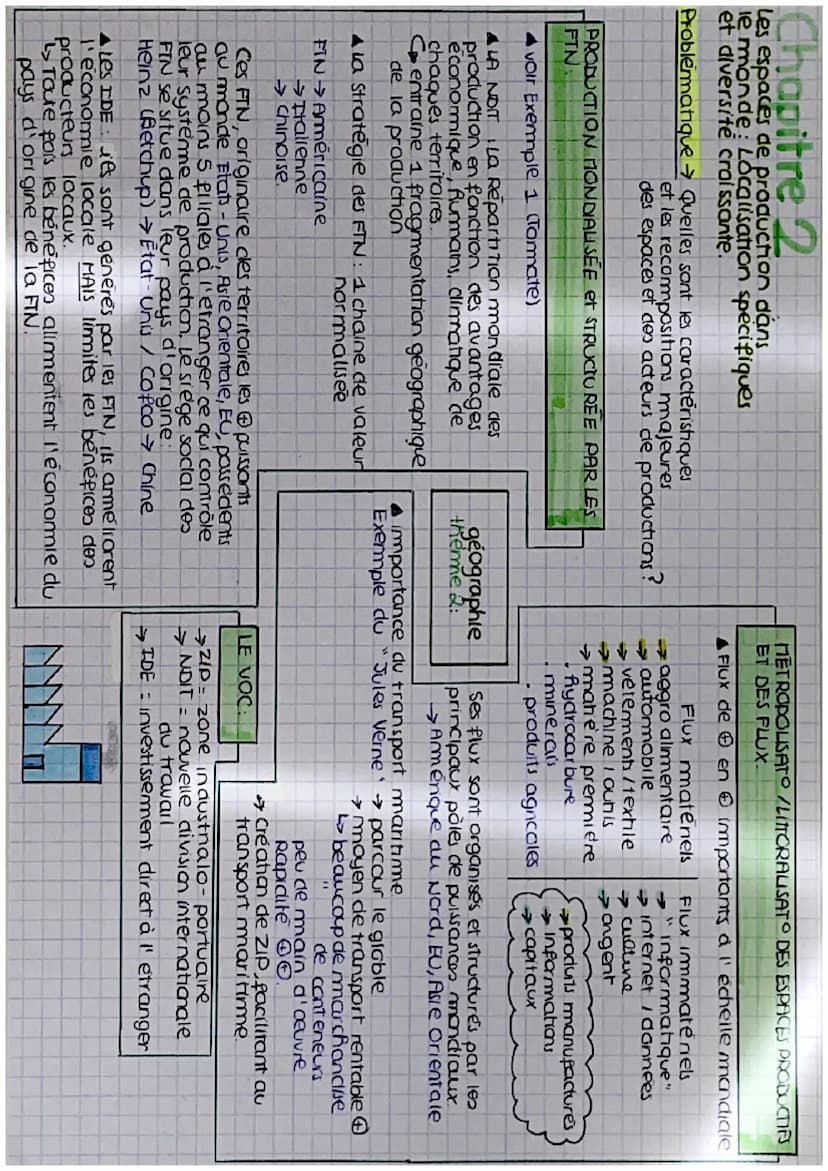 Chapitre 2
Les espaces de production dans
le monde : Localisation spécifiques
et diversité croissante.
Problématique → Quelles sont les caractéristiques
et les recompositions majeures
des espaces et des acteurs de productions ?
PRODUCTION MONDIALISÉE et STRUCTURÉE PAR LES
FTN :
▲ voir Exemple 1 (Tomate)
▲ LA NDIT : La Répartition mondiale des
production en fonction des avantages
économique, humains, climatique de
chaques territoires.
↳ entraine 1 fragmentation géographique
de la production
▲ La Stratégie des FTN : 1 chaine de valeur
normalisée
FTN → Américaine
→ Italienne
→ Chinoise.
Ces FTN, originaire des territoires les ⊕ puissants
au monde Etats-Unis, Asie Orientale, EU, possèdents
au moins 5 filiales à l'étranger ce qui contrôle
leur système de production. Le siège social des
FTN se situe dans leur pays d'origine :
Heinz (Ketchup) → État-Unis / Cofco → Chine
▲ Les IDE : ils sont générés par les FTN, ils améliorent
l'économie locale MAIS limites les bénéfices des
producteurs locaux.
↳ Toute fois les bénéfices alimentent l'économie du
pays d'origine de la FTN.
géographie
thème 2 :
MÉTROPOLISAT° / LITTORALISAT° DES ESPACES PRODUCTIFS
ET DES FLUX.
▲ Flux de ⊕ en ⊕ importants à l'échelle mondiale
Flux matériels
→ aggro alimentaire
→ automobile
→ vêtements / textile
→ machine / outils
→ matière première
. hydrocarbure
. minerais
. produits agricoles
Flux immatériels
→ "informatique"
→ internet / données
→ culture
→ argent
→ produits manufacturés
→ Informations
→ capitaux
Ses flux sont organisés et structurés par les
principaux pôles de puissances mondiaux
→ Amérique du Nord, EU, Asie Orientale
▲ importance du transport maritime
Exemple du "Jules Verne" → parcour le globe
→ moyen de transport rentable ⊕
↳ beaucoup de marchandise
" de conteneurs
peu de main d'œuvre
Rapidité ⊕⊕.
→ création de ZIP, facilitant au
transport maritime.
LE VOC :
→ ZIP = zone industrialo-portuaire
→ NDIT = nouvelle division internationale
du travail
→ IDE = investissement direct à l'étranger